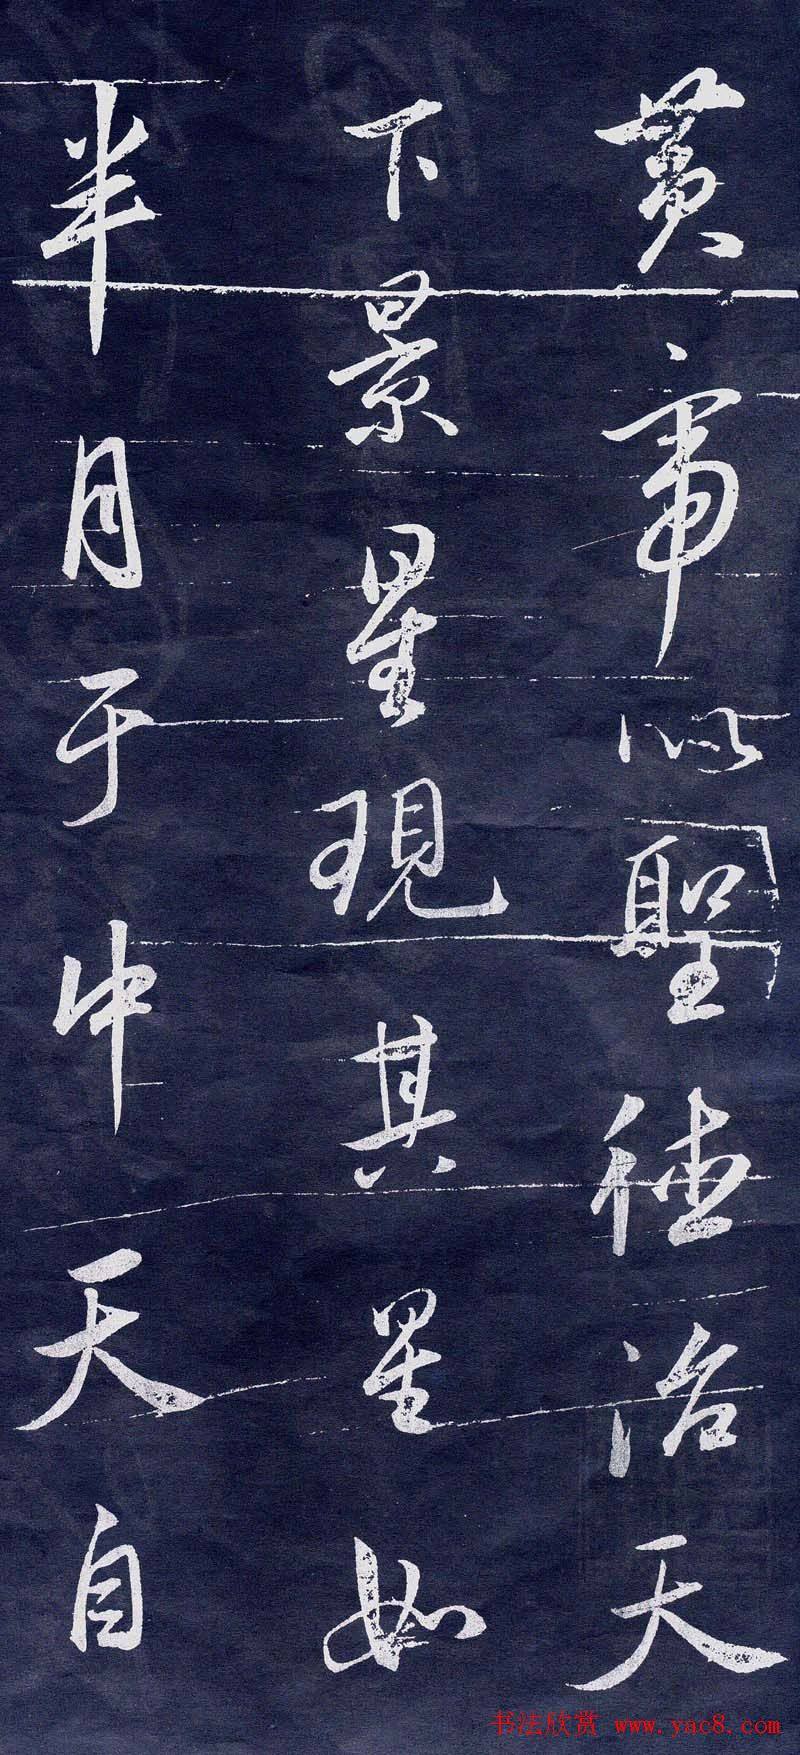 黄帝以聖德治天
下景星現其星如
半月于中天自
书法欣赏 www.yac8.com